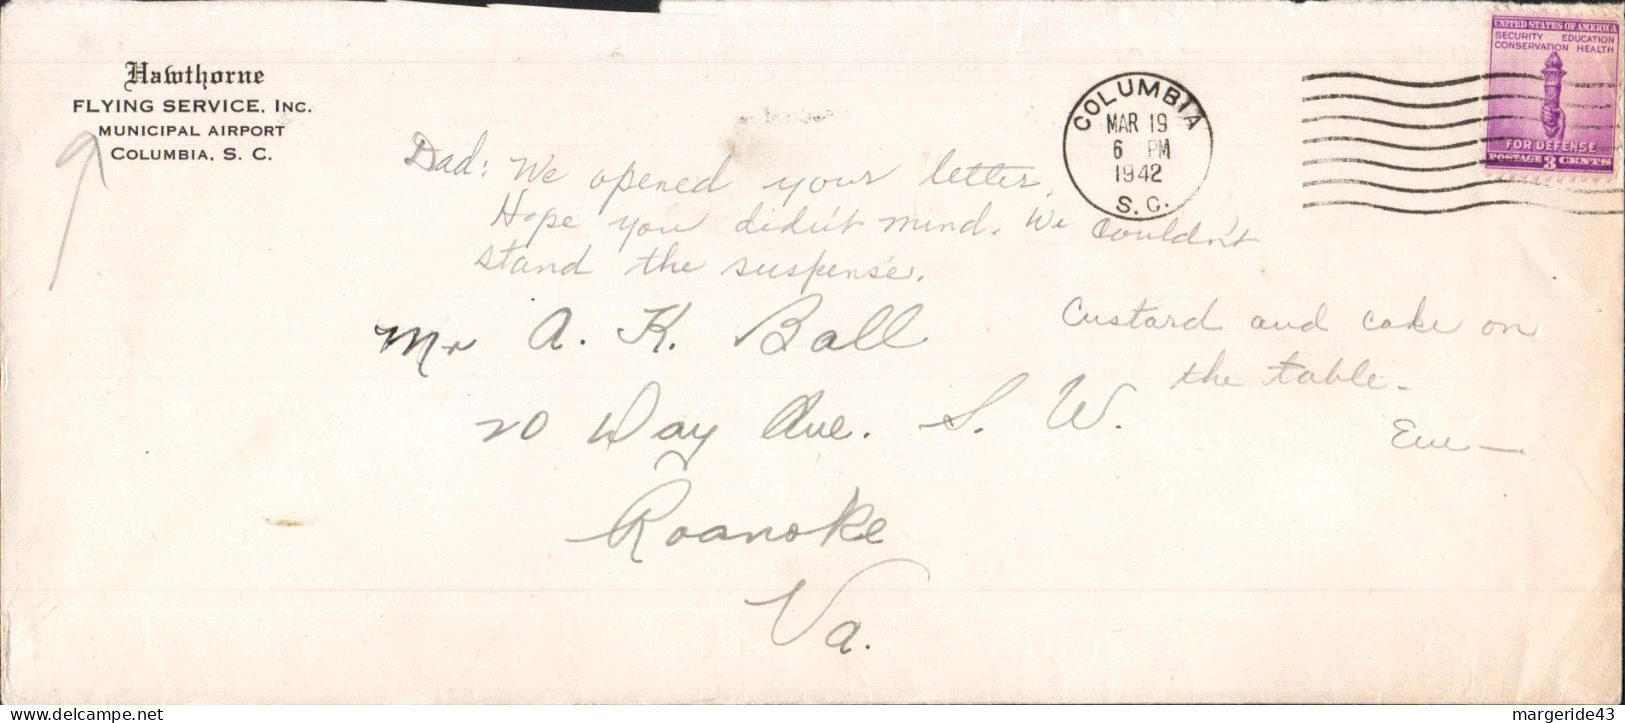 Hawthorne
FLYING SERVICE, INC.
MUNICIPAL AIRPORT
COLUMBIA, S. C.
COLUMBIA
MAR 19
6 PM
1942
S. C.
UNITED STATES OF AMERICA
SECURITY EDUCATION
CONSERVATION HEALTH
FOR DEFENSE
POSTAGE 3 CENTS
Dad: We opened your letter.
Hope you didn't mind. We couldn't
stand the suspense.
Custard and cake on
the table-
Mr A. K. Ball
20 Day Ave. S. W.
Roanoke
Va.
margeride43